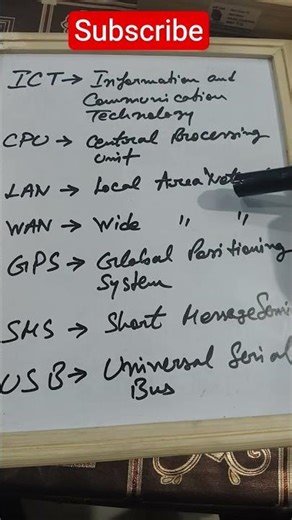 Subscribe
ICT → Information and
Communication
Technology
CPU → Central Processing
Unit
LAN → Local Area
WAN → Wide " "
GPS → Global Positioning
System
SMS → Short Message
USB → Universal Serial
Bus